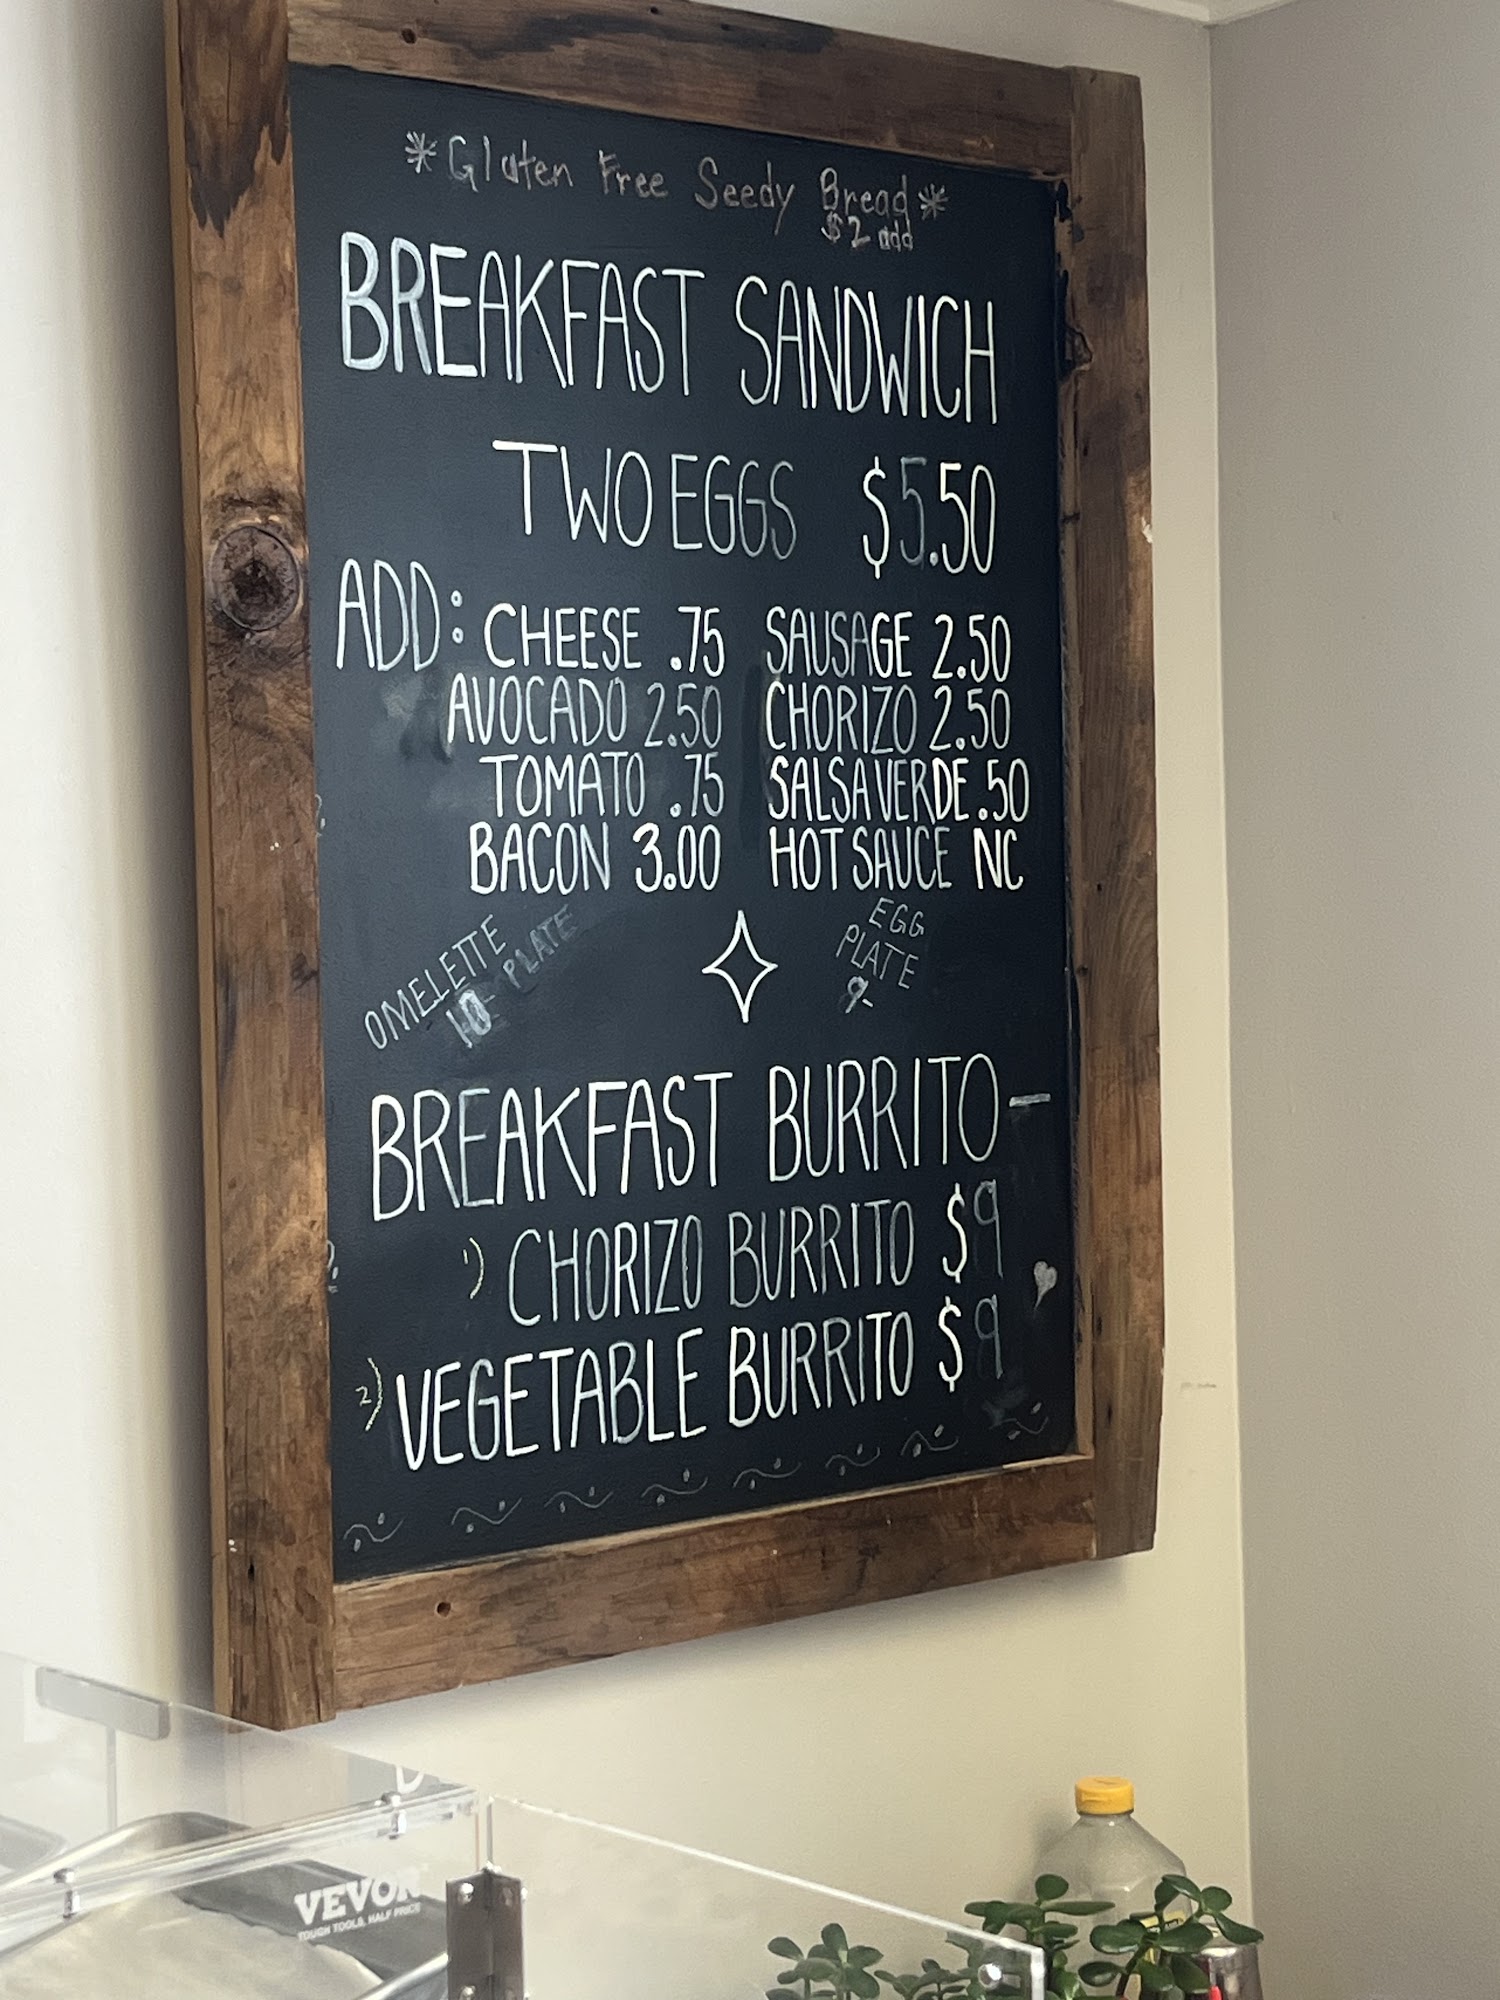 *Gluten Free Seedy Bread*
$2 add
BREAKFAST SANDWICH
TWO EGGS $5.50
ADD: CHEESE .75 SAUSAGE 2.50
AVOCADO 2.50 CHORIZO 2.50
TOMATO .75 SALSA VERDE .50
BACON 3.00 HOT SAUCE NC
OMELETTE PLATE
10-
EGG
PLATE
9-
BREAKFAST BURRITO-
1) CHORIZO BURRITO $9
2) VEGETABLE BURRITO $9
VEVOR
TOUGH TOOLS, HALF PRICE